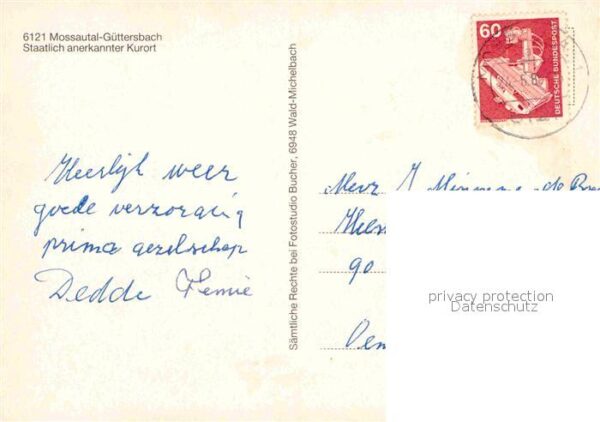 6121 Mossautal-Güttersbach
Staatlich anerkannter Kurort
60
DEUTSCHE BUNDESPOST
Heerlijk weer
goede verzorging
prima gezelschap
Dedde Femie
Sämtliche Rechte bei Fotostudio Bucher, 6948 Wald-Michelbach
90
privacy protection
Datenschutz